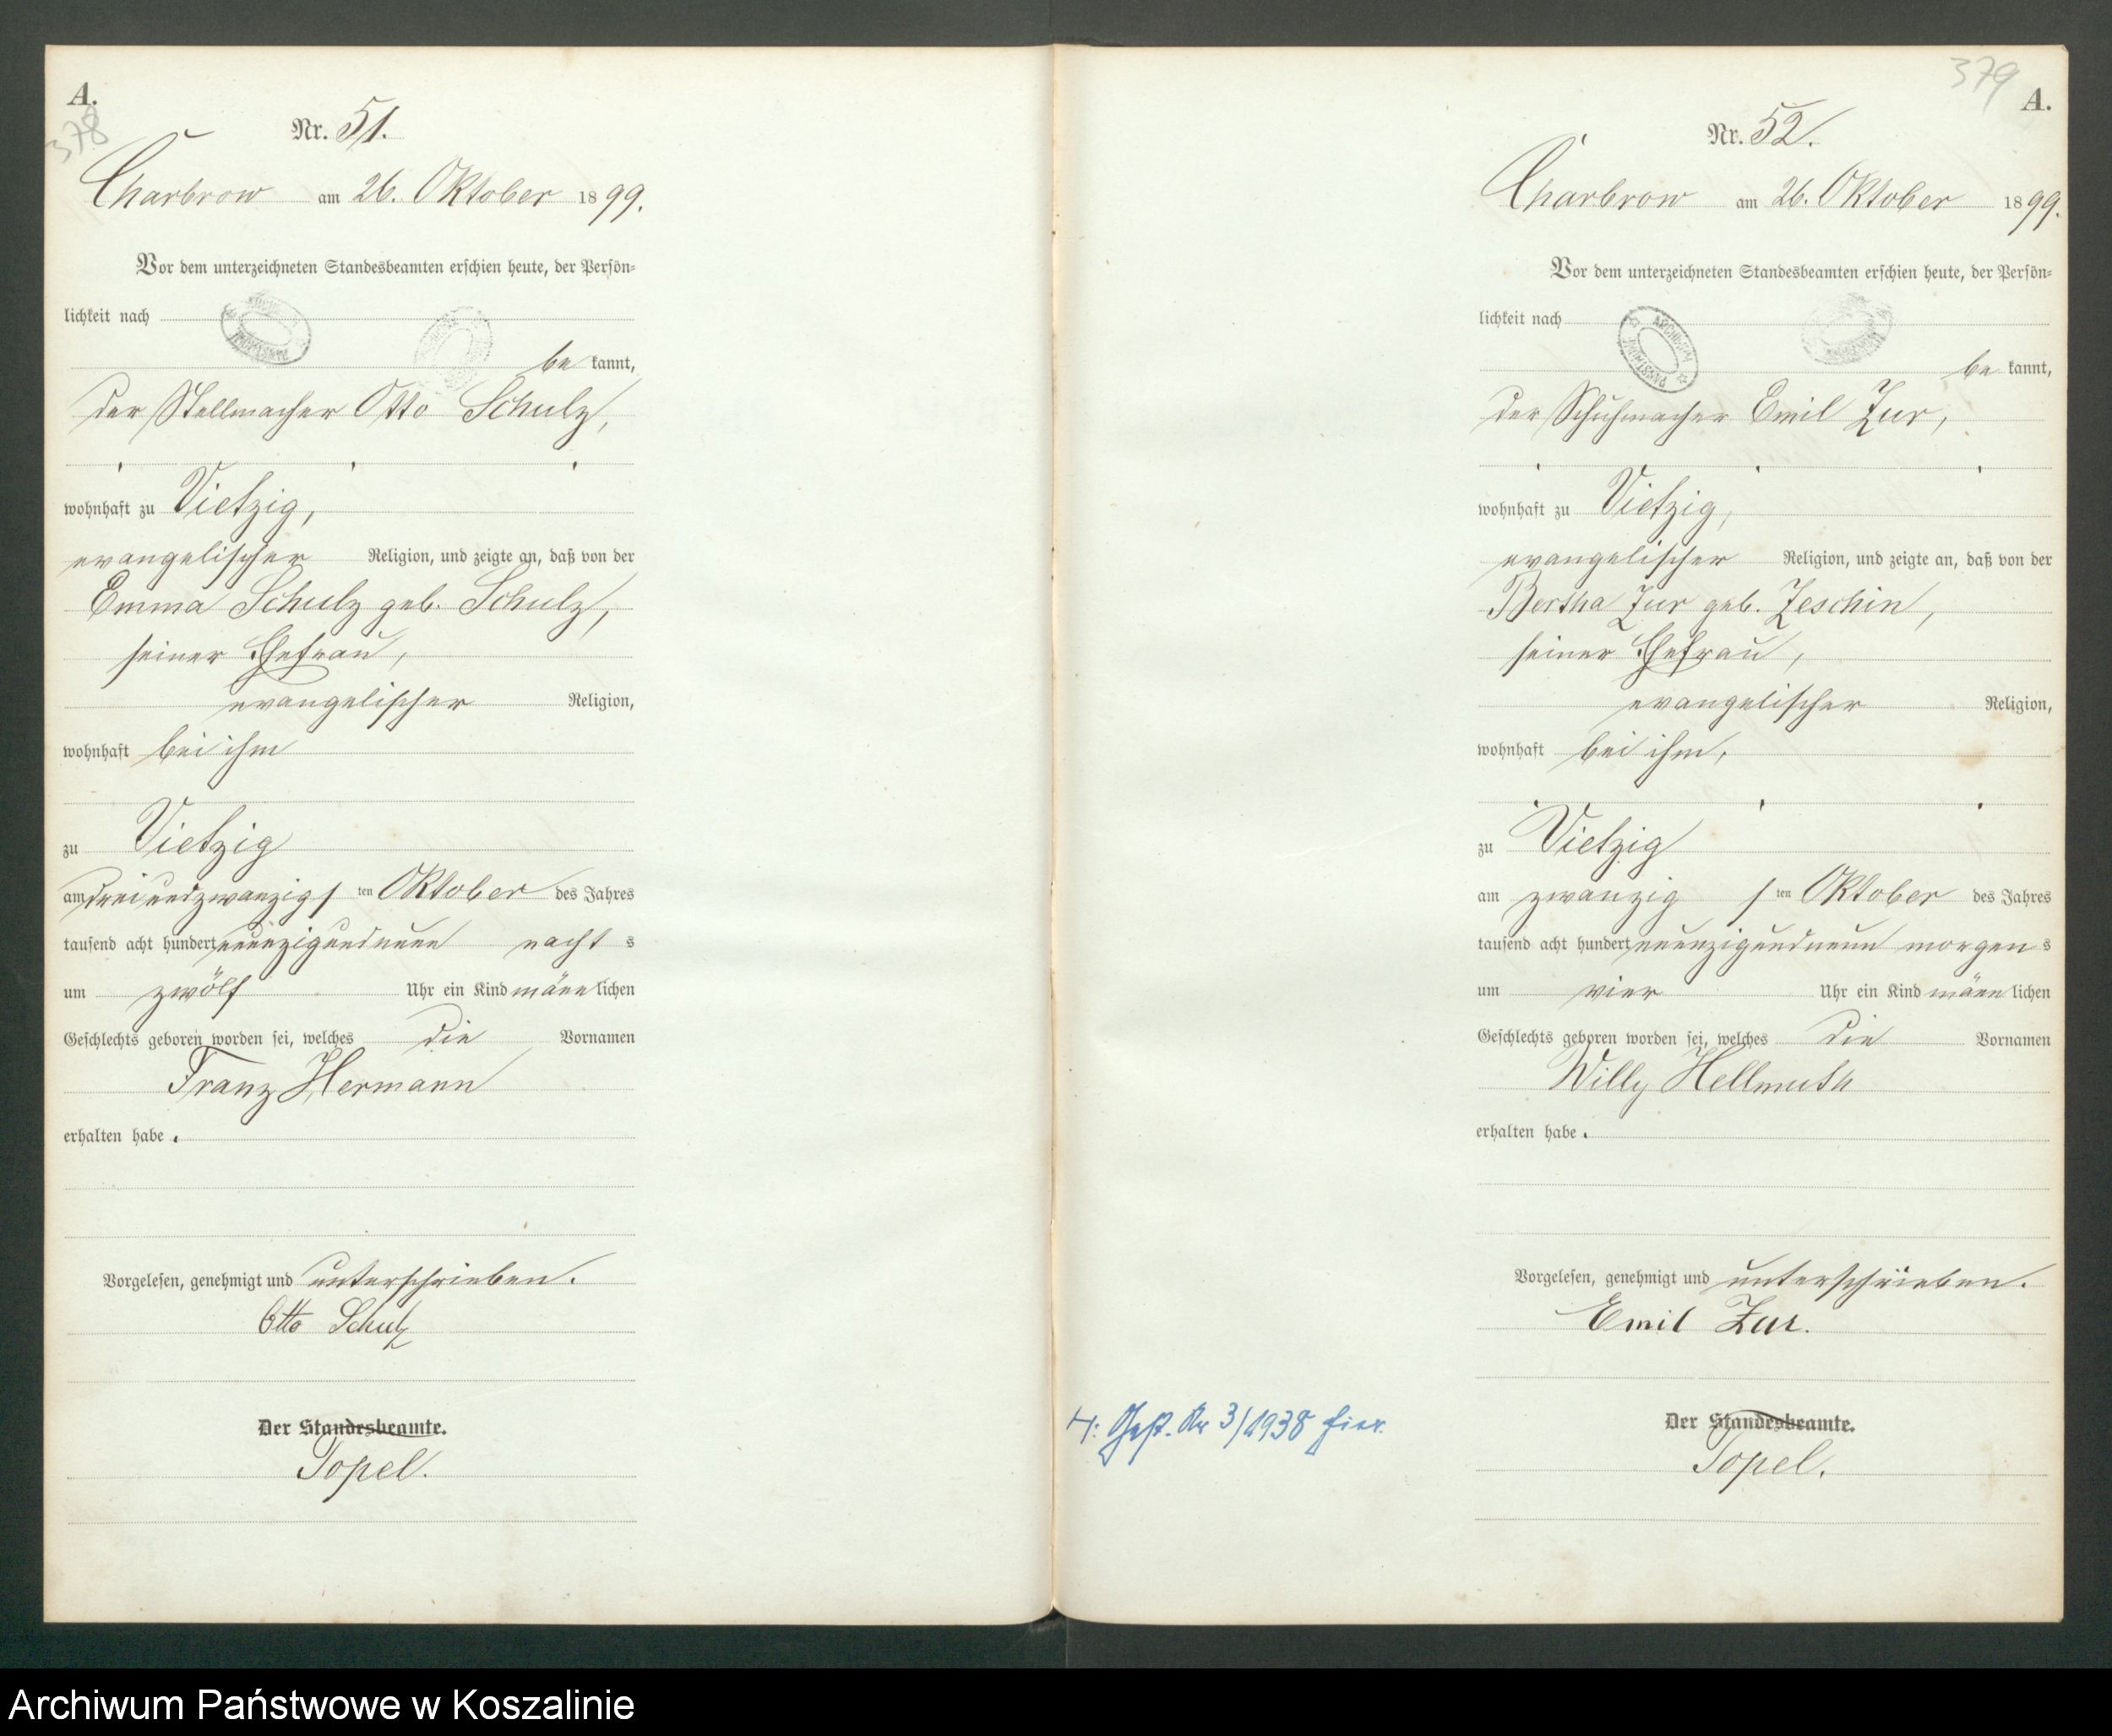 A.
378
Nr. 51.
Charbrow am 26. Oktober 1899.
Vor dem unterzeichneten Standesbeamten erschien heute, der Persön=
lichkeit nach
be kannt,
der Stellmacher Otto Schulz,
wohnhaft zu Vietzig,
evangelischer Religion, und zeigte an, daß von der
Emma Schulz geb. Schulz,
seiner Ehefrau,
evangelischer Religion,
wohnhaft bei ihm
zu Vietzig
am dreiundzwanzig ten Oktober des Jahres
tausend acht hundert neunzigundneun nacht s
um zwölf Uhr ein Kind männlichen
Geschlechts geboren worden sei, welches die Vornamen
Franz Hermann
erhalten habe.
Vorgelesen, genehmigt und unterschrieben.
Otto Schulz
Der Standesbeamte.
Topel.
379
A.
Nr. 52.
Charbrow am 26. Oktober 1899.
Vor dem unterzeichneten Standesbeamten erschien heute, der Persön=
lichkeit nach
ARCHIWUM PAŃSTWOWE
be kannt,
der Schuhmacher Emil Zur,
wohnhaft zu Vietzig,
evangelischer Religion, und zeigte an, daß von der
Bertha Zur geb. Zeschin,
seiner Ehefrau,
evangelischer Religion,
wohnhaft bei ihm,
zu Vietzig
am zwanzig ten Oktober des Jahres
tausend acht hundert neunzigundneun morgen s
um vier Uhr ein Kind männlichen
Geschlechts geboren worden sei, welches die Vornamen
Willy Hellmuth
erhalten habe.
Vorgelesen, genehmigt und unterschrieben.
Emil Zur.
H: Gesch. Nr 3/1938 hier.
Der Standesbeamte.
Topel.
Archiwum Państwowe w Koszalinie